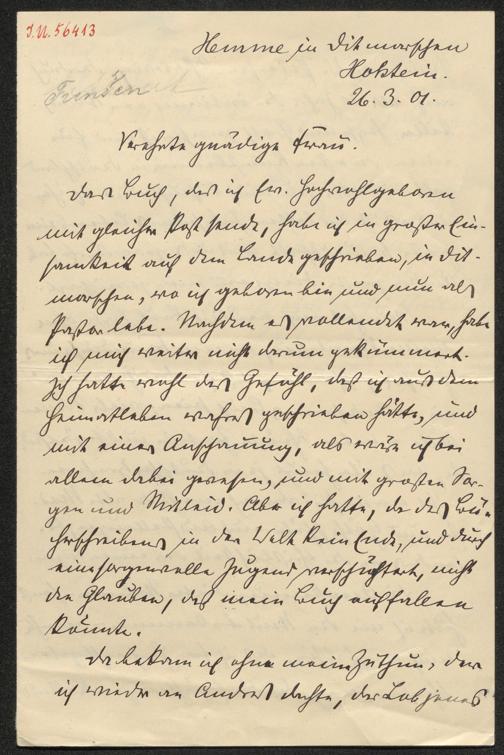 I.N. 56413
Hemme in Ditmarschen
Holstein.
26. 3. 01.
Frenssen
Verehrte gnädige Frau.
Das Buch, das ich Ew. Hochwohlgeboren
mit gleicher Post sende, habe ich in großer Ein-
samkeit auf dem Lande geschrieben, in Dit-
marschen, wo ich geboren bin und nun als
Pastor lebe. Nachdem es vollendet war, habe
ich mich weiter nicht darum gekümmert.
Ich hatte wohl das Gefühl, daß ich aus dem
Heimatleben wahres geschrieben hätte, und
mit einer Anschauung, als wäre ich bei
allem dabei gewesen, und mit großen Sor-
gen und Mitleid. Aber ich hatte, da des Bü-
cherschreibens in der Welt kein Ende, und durch
eine sorgenvolle Jugend verschüchtert, nicht
den Glauben, daß mein Buch auffallen
könnte.
Da bekam ich ohne mein Zuthun, der
ich wieder an Andres dachte, das Lob jenes